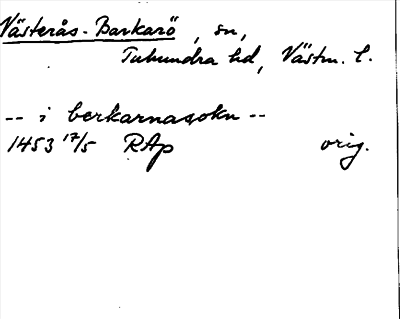 Västerås-Barkarö, sn,
Tuhundra hd, Västm. l.
-- i berkarnasokn --
1453 17/5 RAp orig.